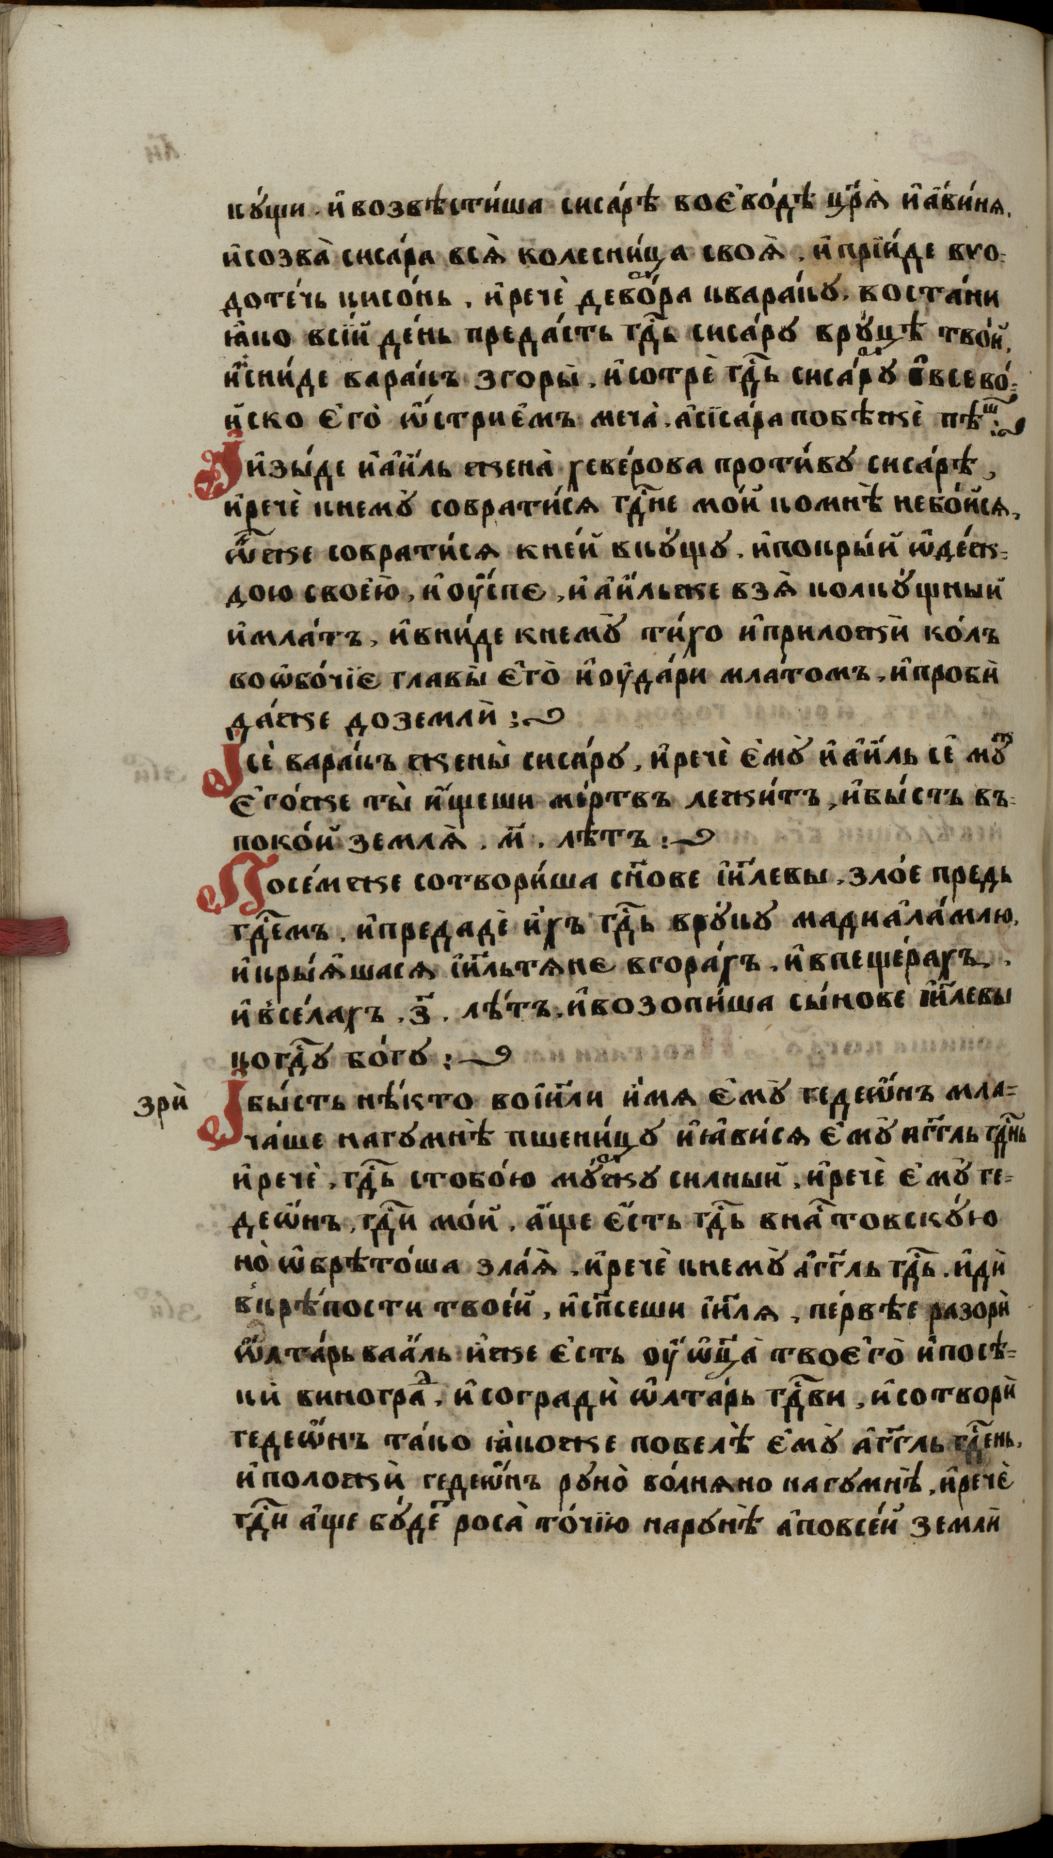 кꙋ́щи. и҆ возвѣсти́ша сиса́рѣ воево́дѣ цр҃ѧ̀ и҆а҆ви́нѧ,
и҆созва̀ сиса́ра всѧ̀ колесни́ца своѧ̀, и҆прїи́де вᲂ
доте́чь кисо́нь, и҆речѐ дево́ра квара́кꙋ, востáни
ꙗ҆́кѡ всі́й де́нь преда́сть гд҃ь сиса́рꙋ врꙋ́цѣ твои́,
и҆сни́де вара́къ згоры̀, и҆сотрѐ гд҃ь сиса́рꙋ и҆всево́-
йско є҆го̀ ѻ҆стрие́мъ меча̀. а҆сїса́ра побѣжѐ пѣш
И҆зы́де и҆аи́ль жена̀ хеве́рова проти́вꙋ сиса́рѣ,
и҆речѐ кнемꙋ̀ соврати́сѧ гд҃не мо́й комнѣ̀ небо́йсѧ,
ѻ҆́нже соврати́сѧ кне́й вкꙋ́щꙋ. и҆покры́й ѻ҆де́ж-
дою свое́ю, и҆ ᲂу҆спе, и҆аи́льже взѧ̀ колкꙋ́щный
и҆мла́тъ, и҆вни́де кнемꙋ̀ ти́хо и҆приложѝ ко́лъ
воѻ҆бо́чїе главы̀ є҆го̀ и҆ᲂу҆да́ри мла́томъ, и҆пробѝ
да́же доземлѝ :
И҆сѐ вара́къ жены̀ сиса́рꙋ, и҆речѐ є҆мꙋ̀ и҆аи́ль сѐ мꙋж
є҆го́же ты̀ и҆́щеши ме́ртвъ лежи́тъ, и҆бы́сть въ-
поко́й землѧ̀. м҃. лѣ́тъ :
Посе́мже сотвори́ша сн҃ове і҆и҃левы, зло́е предь
гд҃емъ. и҆предадѐ и҆́хъ гд҃ь врꙋ́кꙋ мадиа҆ла́млю,
и҆кры́ѧшасѧ і҆и҃льтѧне вгора́хъ, и҆впеще́рахъ,
и҆все́лахъ. з҃. лѣ́тъ, и҆возопи́ша сы́нове і҆и҃левы
когд҃ꙋ бо́гꙋ :
зрѝ
И҆бы́сть нѣ́кто воі҆и҃ли и҆́мѧ є҆мꙋ̀ гедеѡ́нъ мла-
ча́ше нагꙋмнѣ̀ пшени́цꙋ и҆ꙗ҆ви́сѧ є҆мꙋ̀ а҆гг҃ль гд҃нь
и҆речѐ, гд҃ь стобо́ю мꙋ́жꙋ силный, и҆речѐ є҆мꙋ̀ ге-
деѡ́нъ, гд҃и мо́й, а҆́ще є҆́сть гд҃ь вна́ товскꙋ́ю
но̀ ѻ҆брѣто́ша зла́ѧ, и҆речѐ кнемꙋ̀ а҆гг҃ль гд҃ь. и҆дѝ
вкрѣ́пости твое́й, и҆сп҃сеши і҆и҃лѧ, пе́рвѣе разорѝ
ѻ҆лта́рь ваа́ль и҆́же є҆сть ᲂу҆ ѻ҆ц҃а̀ твоего̀ и҆посѣ-
кѝ виноград, и҆соградѝ ѻ҆лта́рь гд҃ви, и҆сотворѝ
гедеѡ́нъ та́ко ꙗ҆́коже повелѣ̀ є҆мꙋ̀ а҆гг҃ль гд҃ень,
и҆положѝ гедеѡ́нъ рꙋно̀ во́лнѧно нагꙋмнѣ̀, и҆речѐ
гд҃и а҆́ще бꙋ́дет роса̀ то́чїю нарꙋнѣ̀ а҆повсе́й землѝ